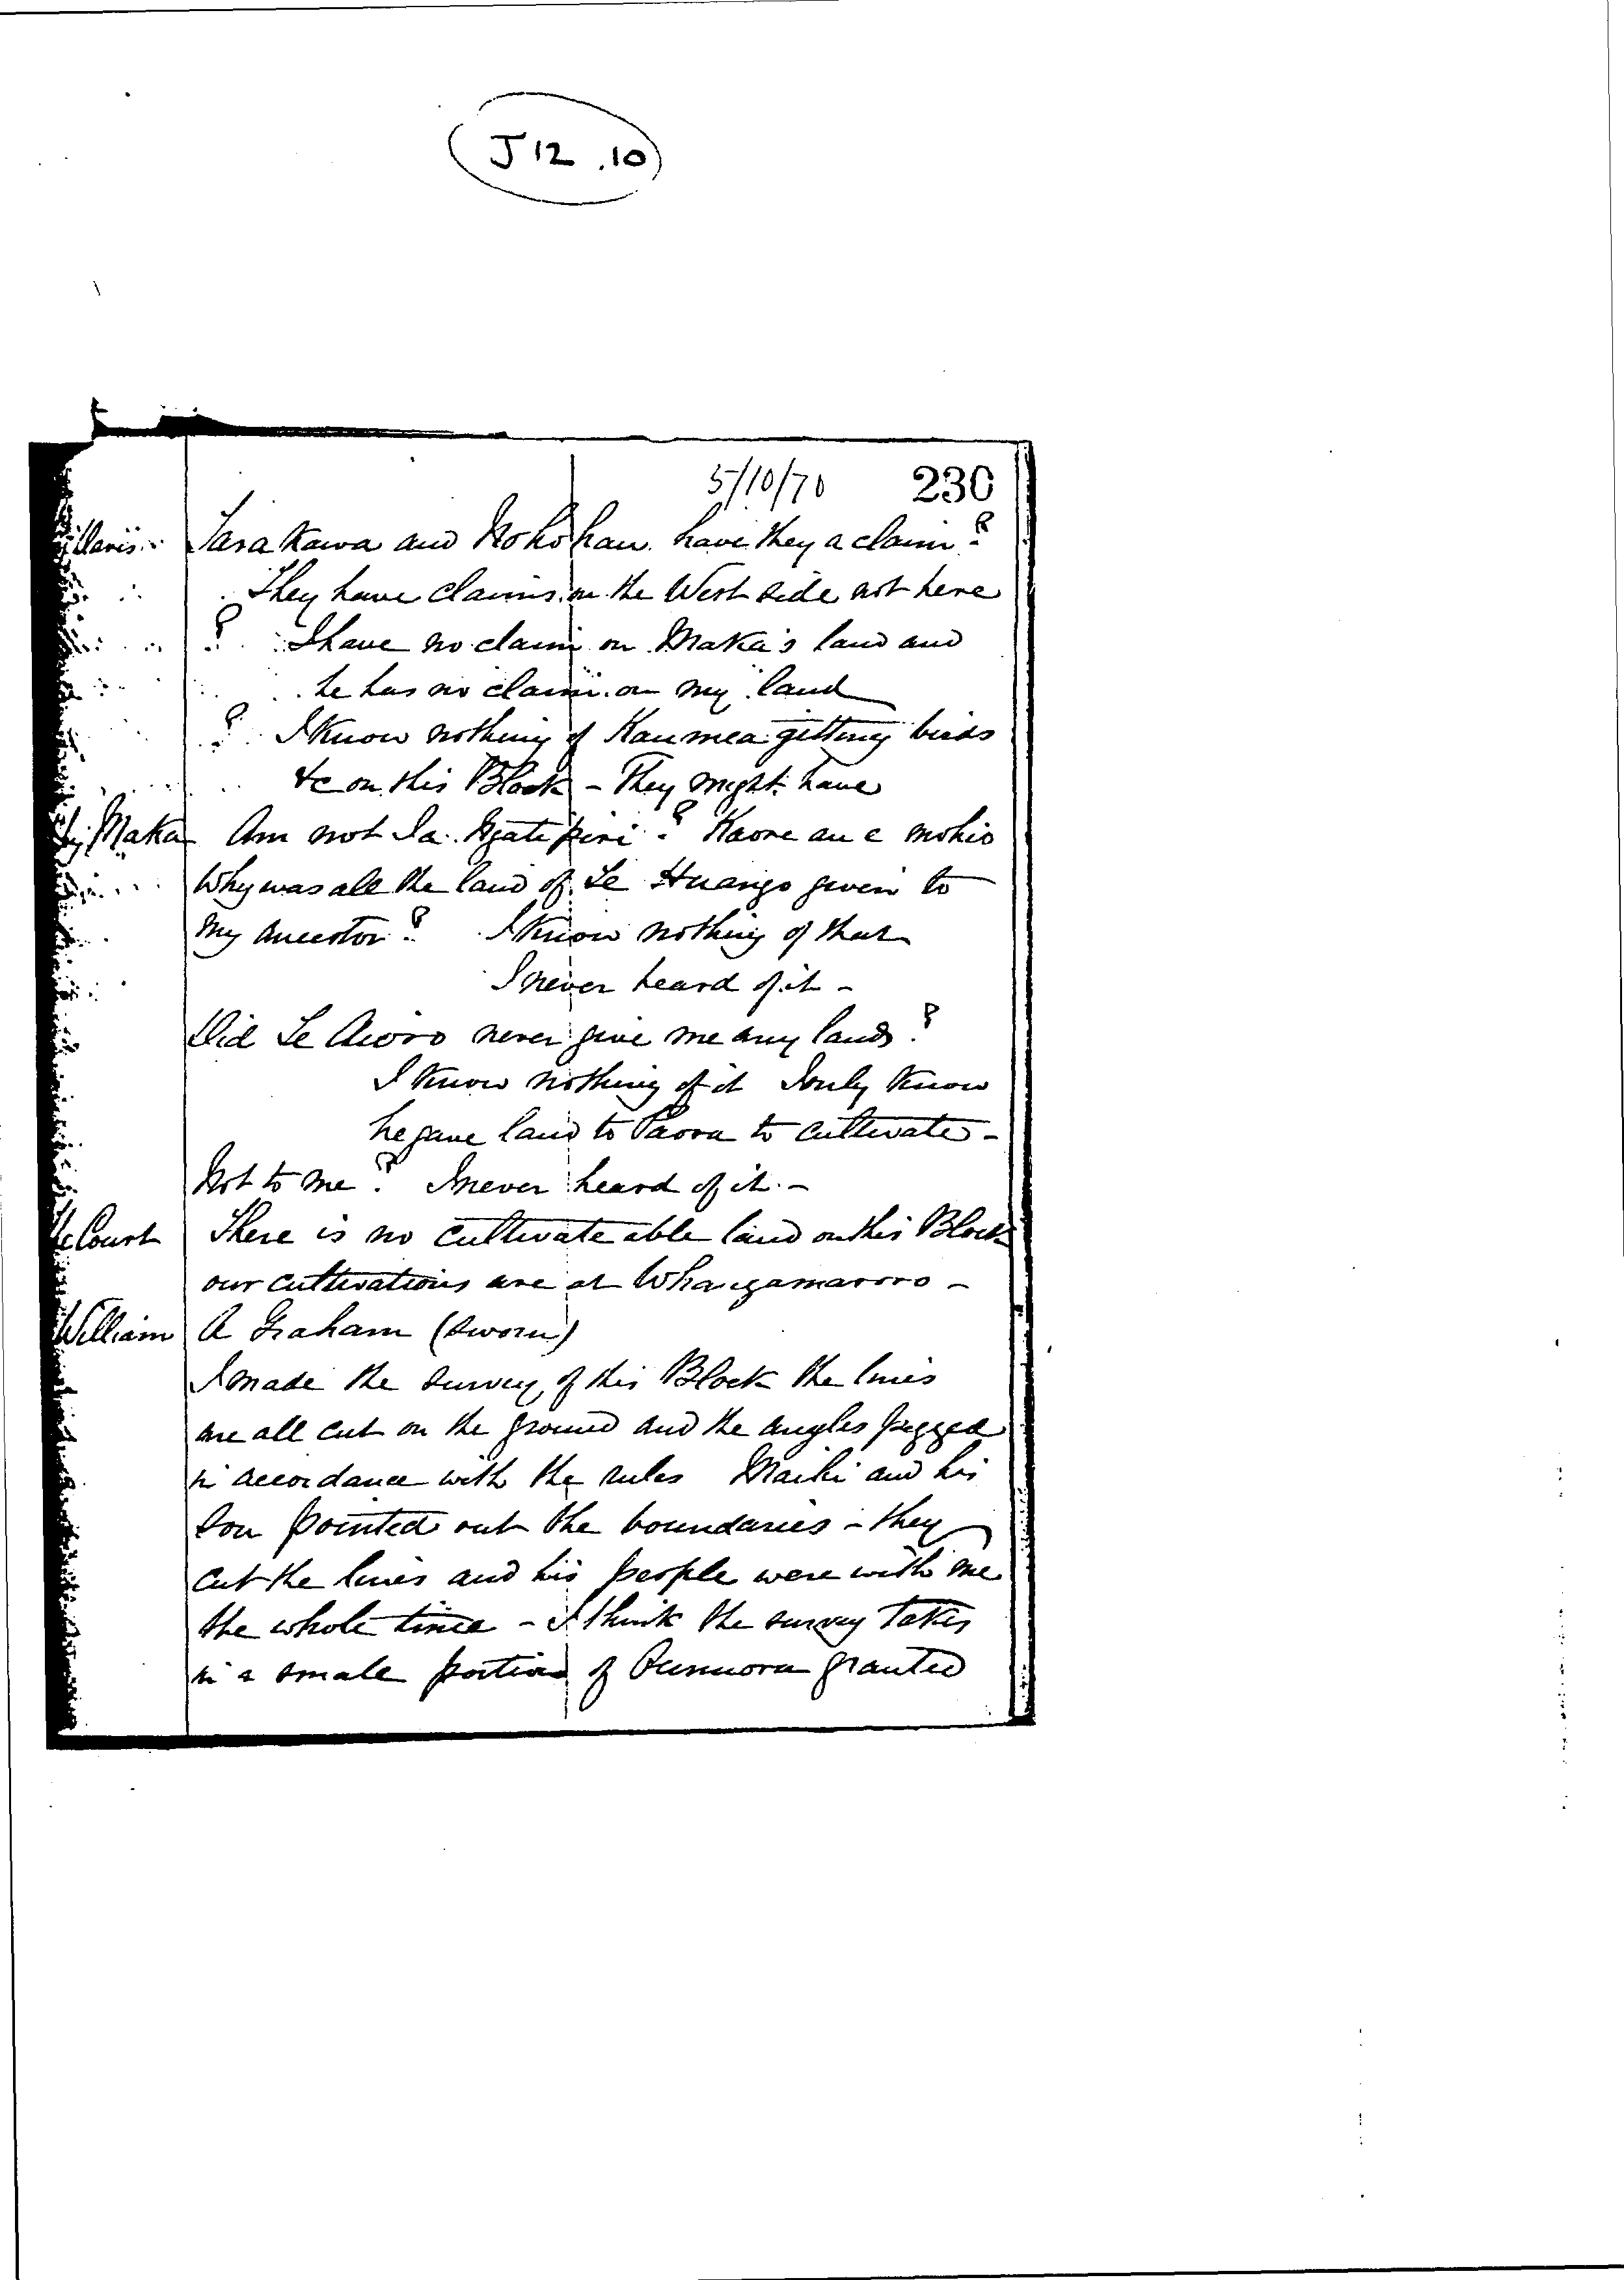 J 12 .10
5/10/70 230
Tarakawa and Hokohau have they a claim?
They have claims on the West side not here
? I have no claim on Maka's land and
he has no claim on my land
? I know nothing of Kaumea getting birds
&c on this Block - They might have
By Maka Am not I a Ngatipiri? Kaore au e mohio
Why was all the land of Te Huango given to
my ancestor? I know nothing of that
I never heard of it -
Did Te Aroro never give me any lands?
I know nothing of it I only know
he gave land to Paora to cultivate -
Not to me? I never heard of it. -
Court There is no cultivateable land on this Block
our cultivations are at Whangamaroro -
William A Graham (sworn)
I made the survey of this Block the lines
are all cut on the ground and the angles pegged
in accordance with the rules Maihi and his
Son pointed out the boundaries - they
cut the lines and his people were with me
the whole time - I think the survey takes
in a small portion of granted